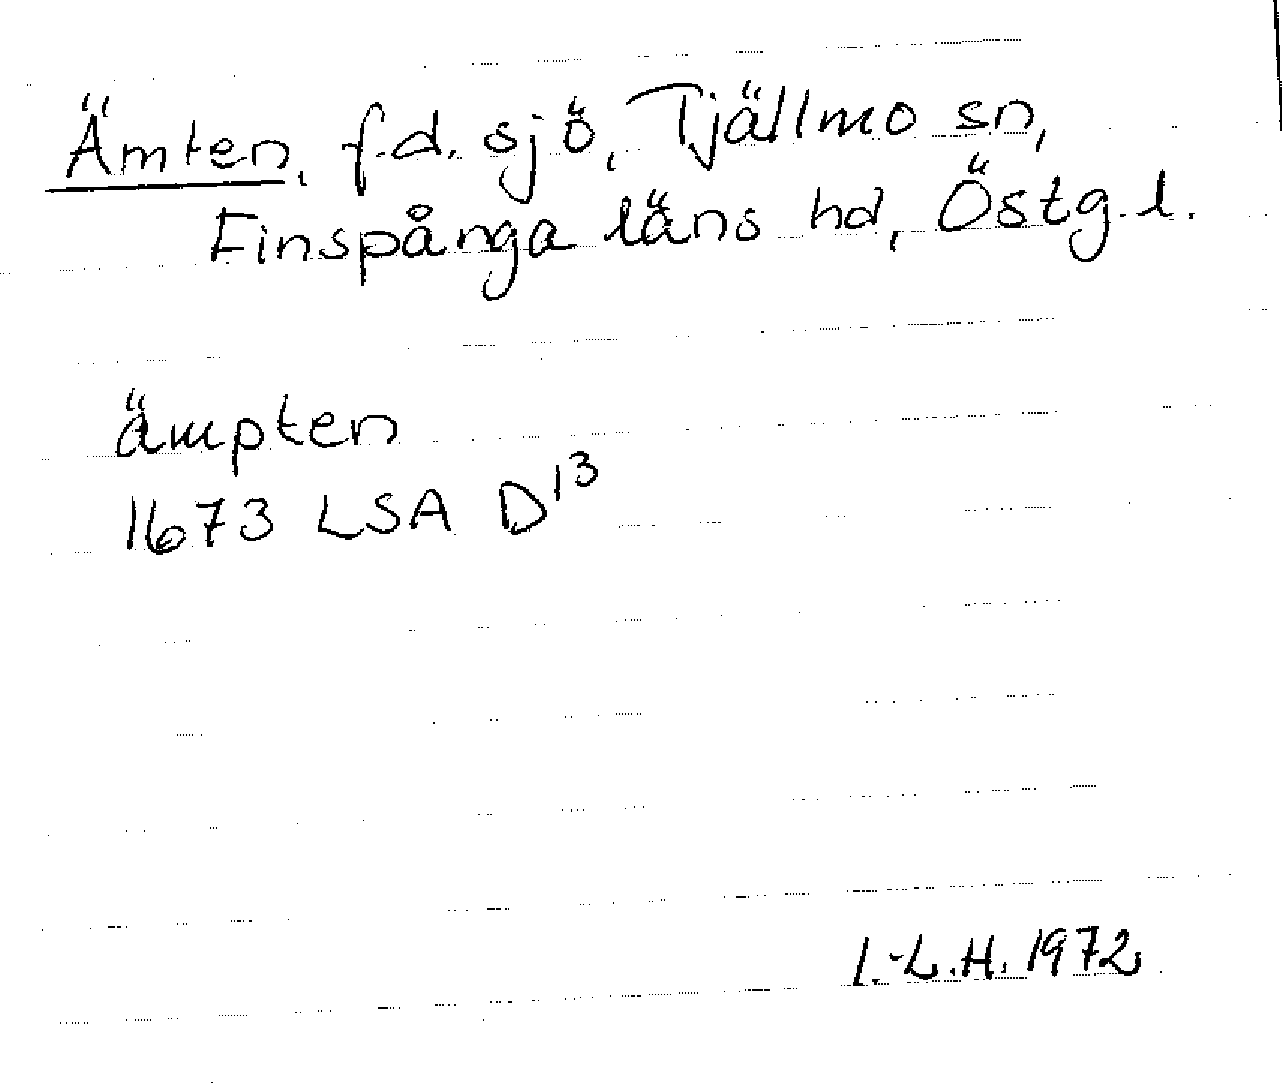 Ämten, f.d. sjö, Tjällmo sn,
Finspånga läns hd, Östg.l.
ämpten
1673 LSA D13
I.-L.H. 1972